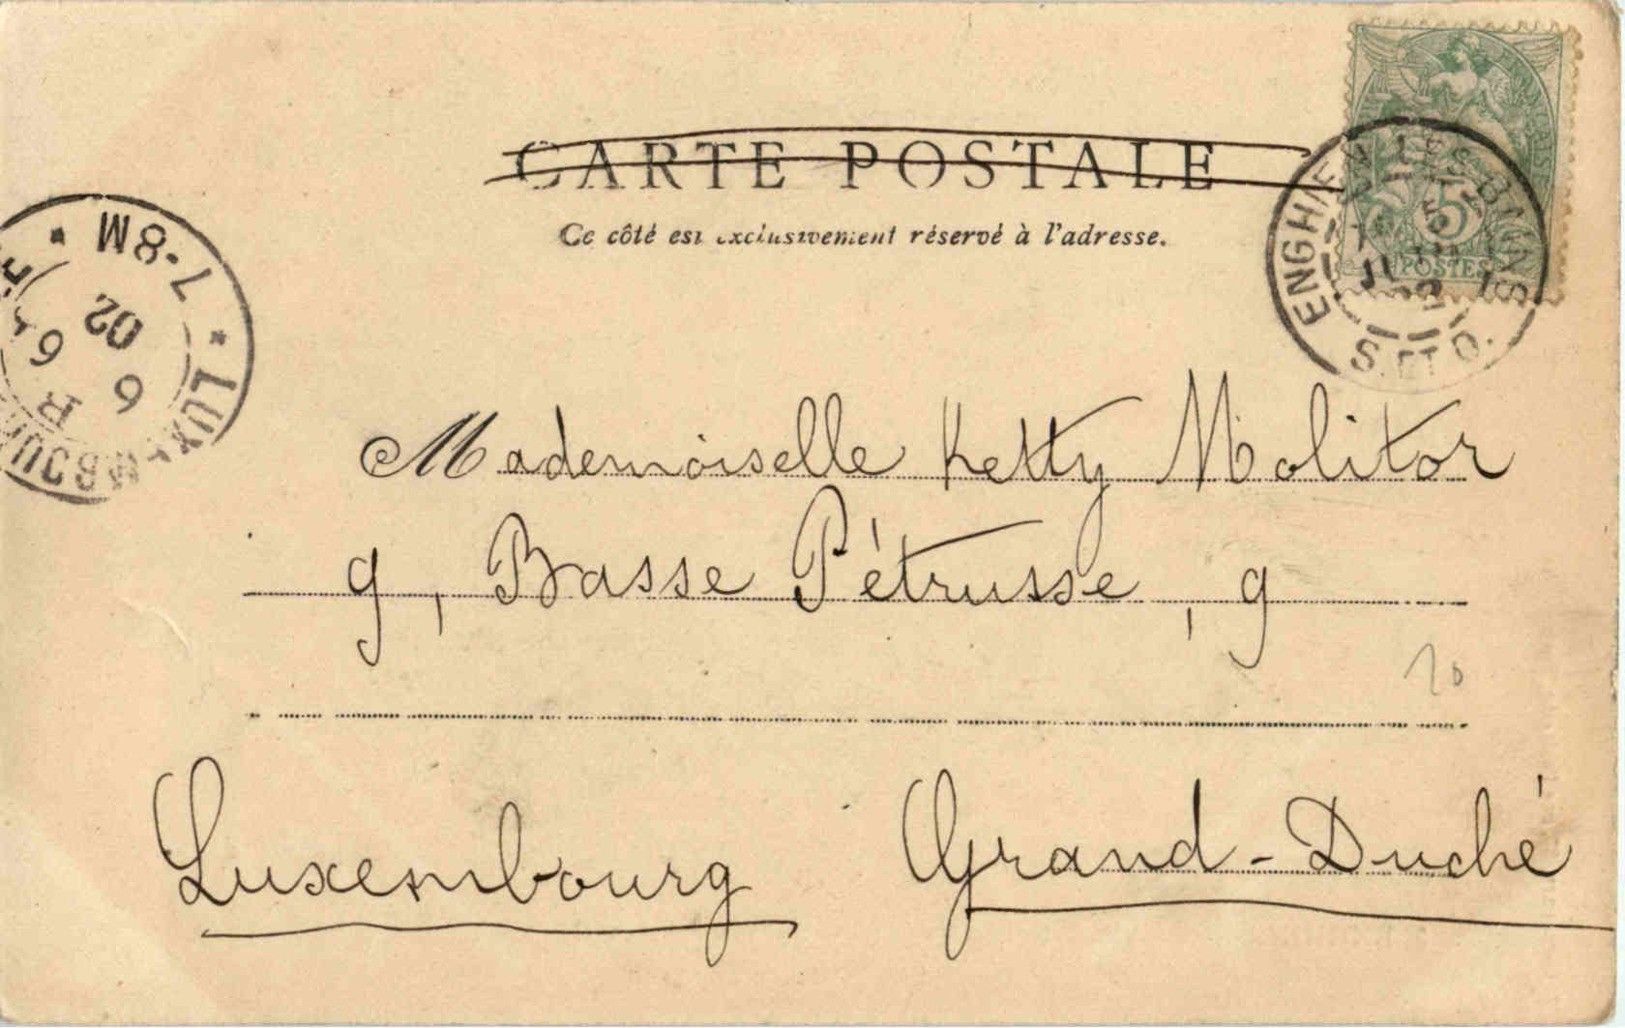 CARTE POSTALE
Ce côté est exclusivement réservé à l'adresse.
ENGHIEN LES BAINS
S. ET O.
5
POSTES
LUXEMBOURG
7-8M
02
6 6
R
Mademoiselle Ketty Molitor
9, Basse Pétrusse, 9
20
Luxembourg Grand-Duché